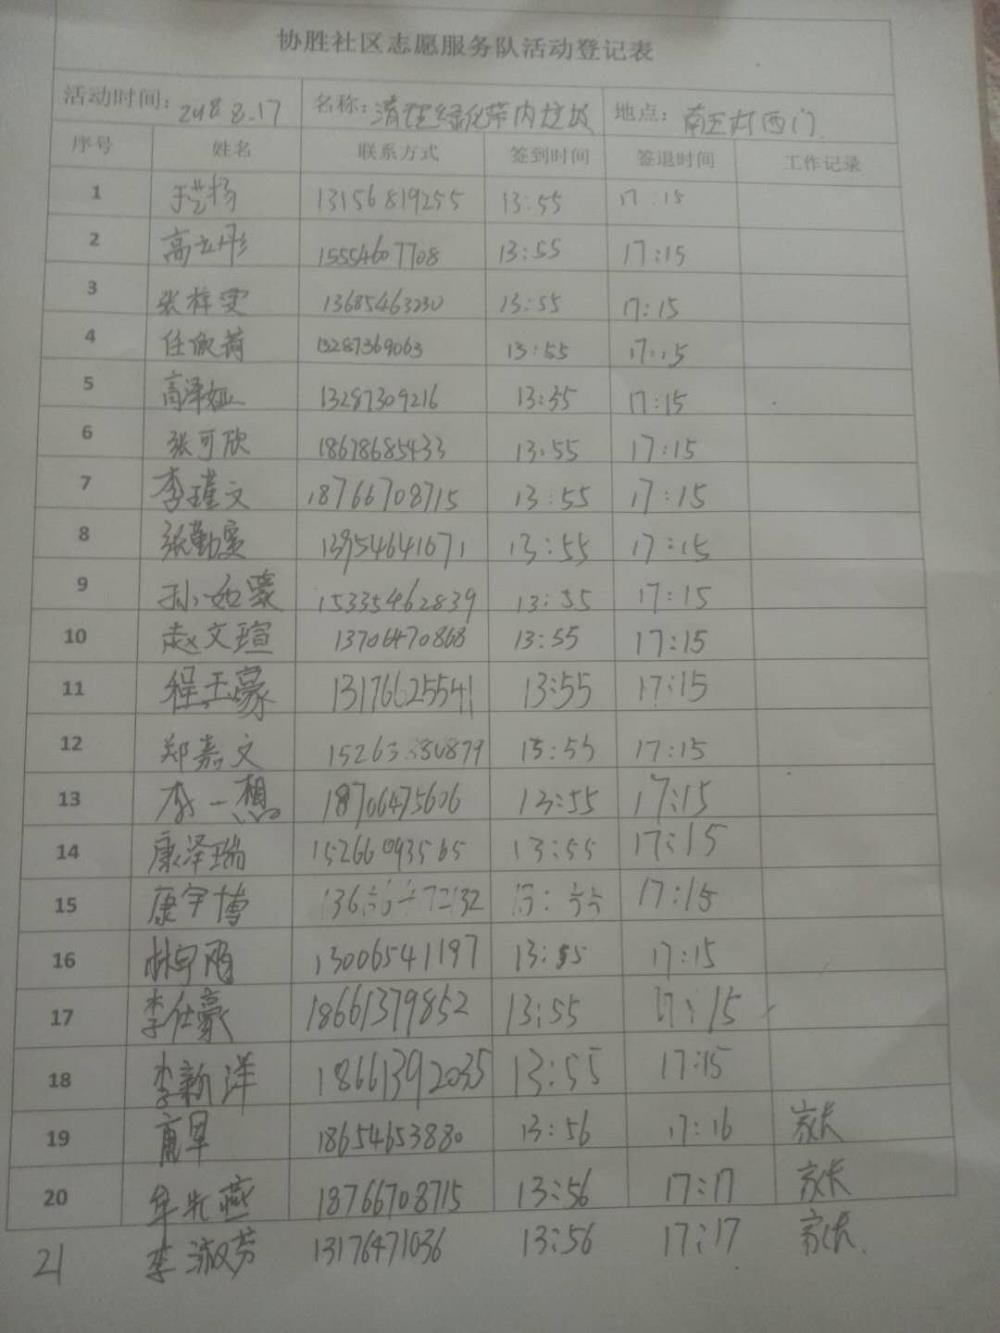 协胜社区志愿服务队活动登记表
活动时间: 2018 8.17 名称: 清理绿化带内垃圾 地点: 南王村西门
序号 姓名 联系方式 签到时间 签退时间 工作记录
1 13156819255 13:55 17:15
2 高立彤 15554607708 13:55 17:15
3 张梓雯 13685463230 13:55 17:15
4 任佩荷 13287369063 13:55 17:15
5 高泽娅 13287309216 13:55 17:15
6 张可欣 18678685433 13:55 17:15
7 李瑾文 18766708715 13:55 17:15
8 张勤雯 13954641671 13:55 17:15
9 孙如豪 15335462839 13:55 17:15
10 赵文瑄 13706470868 13:55 17:15
11 程玉豪 13176625541 13:55 17:15
12 郑嘉文 13:55 17:15
13 李一想 18706475606 13:55 17:15
14 康泽瑞 15266093565 13:55 17:15
15 康宇博 13:55 17:15
16 13006541197 13:55 17:15
17 李仕豪 18661379852 13:55 17:15
18 李新洋 18661392035 13:55 17:15
19 18654653880 13:56 17:16 家长
20 牟光燕 18766708715 13:56 17:17 家长
21 李淑芳 13176471036 13:56 17:17 家长